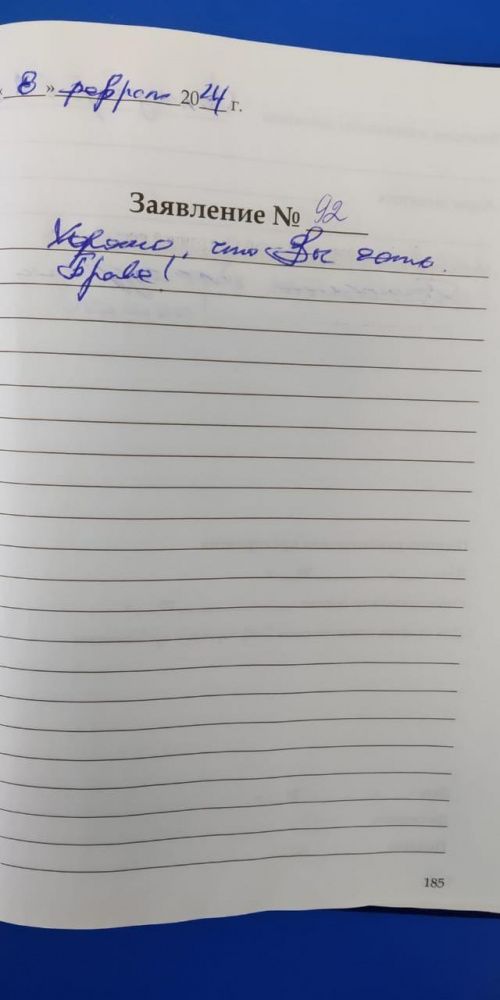 « 8 » феврал 2024 г.
Заявление № 92
Хорошо, что Вы есть.
Браво!
185